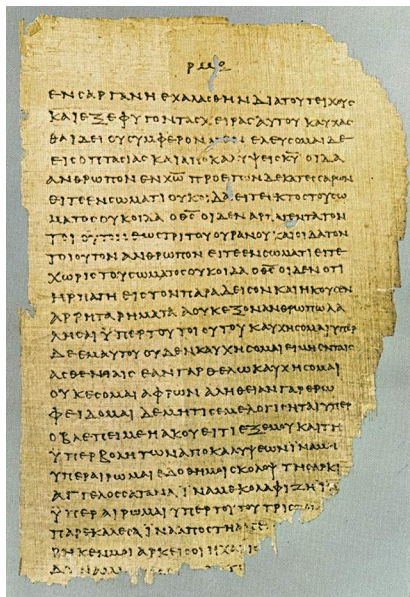 ΕΝ ϹΑΡΓΑΝΗ ΕΧΑΛΑϹΘΗΝ ΔΙΑ ΤΟΥ ΤΕΙΧΟΥϹ
ΚΑΙ ΕΞΕΦΥΓΟΝ ΤΑϹ ΧΕΙΡΑϹ ΑΥΤΟΥ ΚΑΥΧΑϹ
ΘΑΙ ΔΕΙ ΟΥ ϹΥΜΦΕΡΟΝ ΜΕΝ ΕΛΕΥϹΟΜΑΙ ΔΕ
ΕΙϹ ΟΠΤΑϹΙΑϹ ΚΑΙ ΑΠΟΚΑΛΥΨΕΙϹ Κ̅Υ̅ ΟΙΔΑ
ΑΝΘΡΩΠΟΝ ΕΝ Χ̅Ω̅ ΠΡΟ ΕΤΩΝ ΔΕΚΑΤΕϹϹΑΡΩΝ
ΕΙΤΕ ΕΝ ϹΩΜΑΤΙ ΟΥΚ ΟΙΔΑ ΕΙΤΕ ΕΚΤΟϹ ΤΟΥ ϹΩ
ΜΑΤΟϹ ΟΥΚ ΟΙΔΑ Ο Θ̅Ϲ̅ ΟΙΔΕΝ ΑΡΠΑΓΕΝΤΑ ΤΟΝ
ΤΟΙΟΥΤΟΝ ΕΩϹ ΤΡΙΤΟΥ ΟΥΡΑΝΟΥ ΚΑΙ ΟΙΔΑ ΤΟΝ
ΤΟΙΟΥΤΟΝ ΑΝΘΡΩΠΟΝ ΕΙΤΕ ΕΝ ϹΩΜΑΤΙ ΕΙΤΕ
ΧΩΡΙϹ ΤΟΥ ϹΩΜΑΤΟϹ ΟΥΚ ΟΙΔΑ Ο Θ̅Ϲ̅ ΟΙΔΕΝ ΟΤΙ
ΗΡΠΑΓΗ ΕΙϹ ΤΟΝ ΠΑΡΑΔΕΙϹΟΝ ΚΑΙ ΗΚΟΥϹΕΝ
ΑΡΡΗΤΑ ΡΗΜΑΤΑ Α ΟΥΚ ΕΞΟΝ ΑΝΘΡΩΠΩ ΛΑ
ΛΗϹΑΙ ΫΠΕΡ ΤΟΥ ΤΟΙΟΥΤΟΥ ΚΑΥΧΗϹΟΜΑΙ ΫΠΕΡ
ΔΕ ΕΜΑΥΤΟΥ ΟΥΔΕΝ ΚΑΥΧΗϹΟΜΑΙ ΕΙ ΜΗ ΕΝ ΤΑΙϹ
ΑϹΘΕΝΕΙΑΙϹ ΕΑΝ ΓΑΡ ΘΕΛΩ ΚΑΥΧΗϹΟΜΑΙ
ΟΥΚ ΕϹΟΜΑΙ ΑΦΡΩΝ ΑΛΗΘΕΙΑΝ ΓΑΡ ΕΡΩ
ΦΕΙΔΟΜΑΙ ΔΕ ΜΗ ΤΙϹ ΕΜΕ ΛΟΓΙϹΗΤΑΙ ΫΠΕΡ
Ο ΒΛΕΠΕΙ ΜΕ Η ΑΚΟΥΕΙ ΤΙ ΕΞ ΕΜΟΥ ΚΑΙ ΤΗ
ΫΠΕΡΒΟΛΗ ΤΩΝ ΑΠΟΚΑΛΥΨΕΩΝ ΪΝΑ ΜΗ
ΥΠΕΡΑΙΡΩΜΑΙ ΕΔΟΘΗ ΜΟΙ ϹΚΟΛΟΨ ΤΗ ϹΑΡΚΙ
ΑΓΓΕΛΟϹ ϹΑΤΑΝΑ ΪΝΑ ΜΕ ΚΟΛΑΦΙΖΗ ΪΝΑ
ΫΠΕΡΑΙΡΩΜΑΙ ΥΠΕΡ ΤΟΥΤΟΥ ΤΡΙϹ
ΠΑΡΕΚΑΛΕϹΑ ΪΝΑ ΑΠΟϹΤΗ
ΡΗΚΕΝ ΜΟΙ ΑΡΚΕΙ ϹΟΙ Η ΧΑΡΙϹ